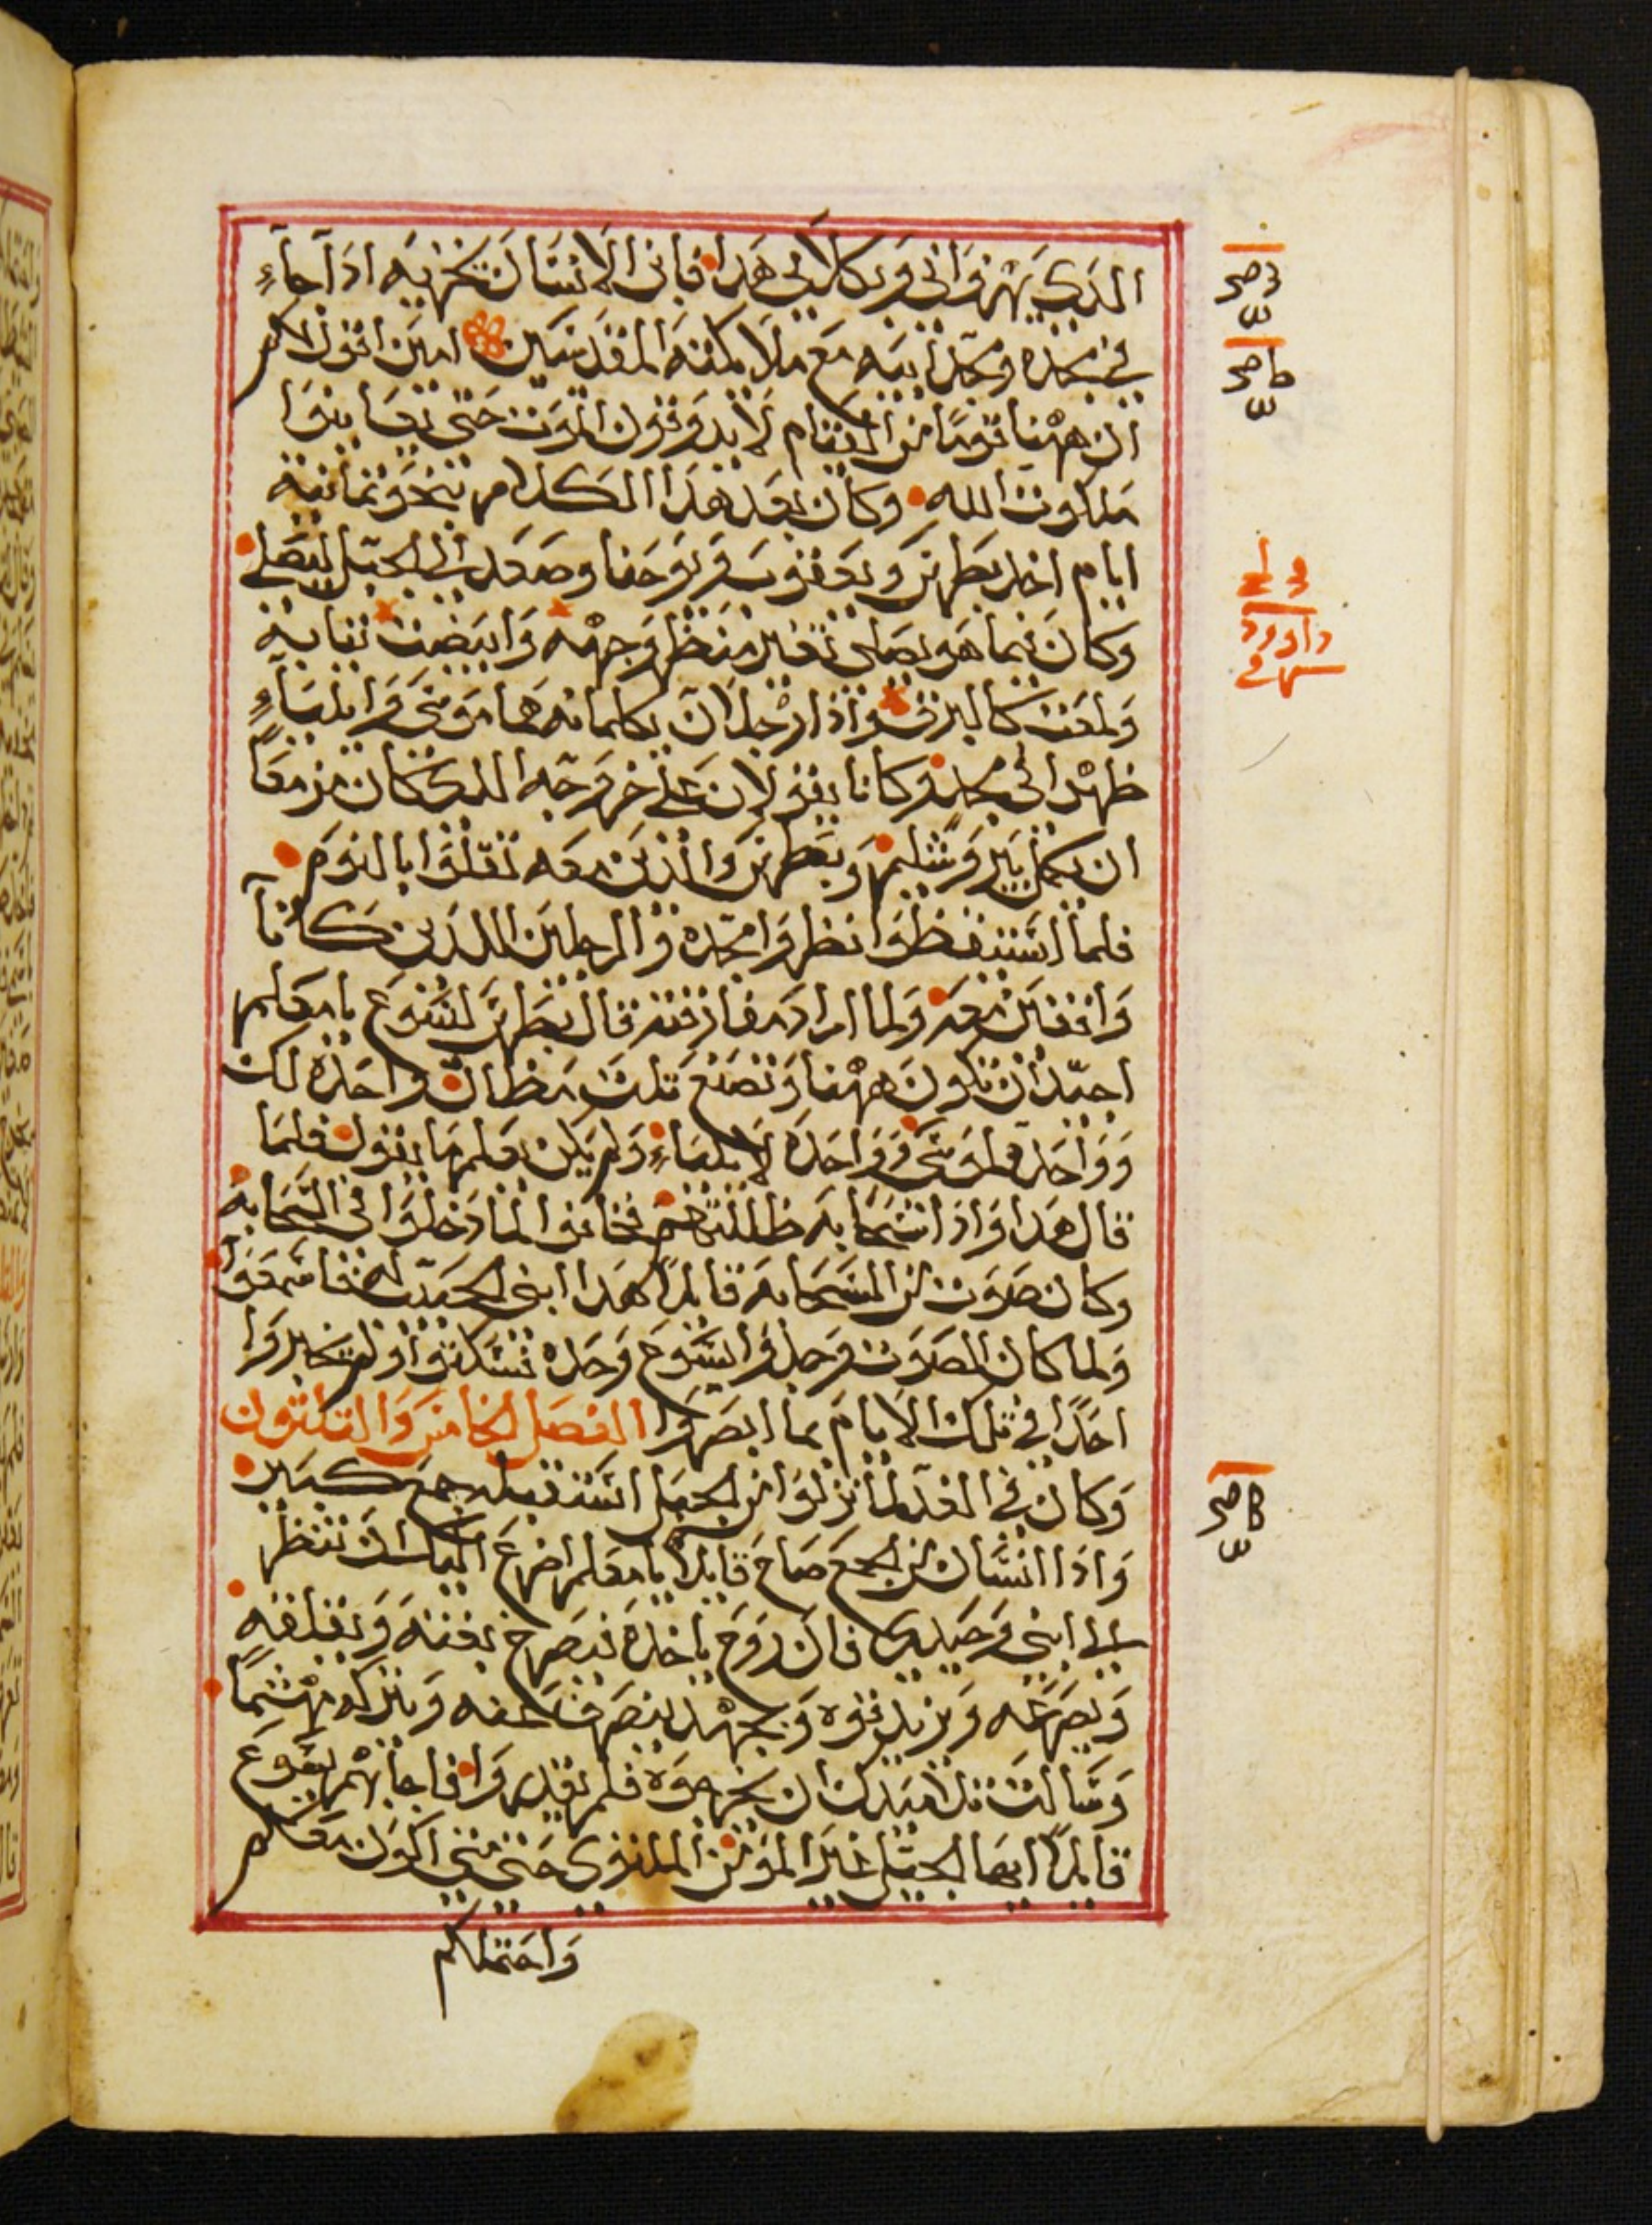 الذي يهزوا بى وبكلامى هدا فابن الانسان يخزيه ادا جاء
في مجده ومجد ابيه مع ملايكته المقدسين امين اقول لكم
ان ههنا قومًا من القيام لا يدوقون الموت حتى يعاينوا
ملكوت الله وكان بعد هدا الكلام نحو تمانية
ايام اخد بطرس ويعقوب ويوحنا وصعد الى الجبل ليصلى
وكان بينما هو يصلى تغير منظر وجهه وابيضت تيابه
ولمعت كالبرق وادا رجلان يكلمانه هما موسى وايلياء
ظهرا فى مجد وكانا يقولان على خروجه الدى كان مزمعًا
ان يكمل بيروشليم وبطرس والذين معه تقلوا بالنوم
فلما استيقظوا نظروا مجده والرجلين اللدين كانا
واقفين معه ولما اراد مفارقته قال بطرس ليسوع يا معلم
اجيد ان نكون ههنا ونصنع تلت مظال واحدة لك
وواحدة لموسى وواحدة لايلياء ولم يكن يعلم ما يقول فلما
قال هدا وادا سحابه ظللتهم فخافوا لما دخلوا فى السحابه
وكان صوت من السحابه قايلًا هدا ابنى الحبيب له فاسمعوا
ولما كان الصوت وجدوا يسوع وحده فسكتوا ولم يخبروا
احدًا في تلك الايام بما ابصروا الفصل الخامس والتلتون
وكان فى الغد لما نزلوا من الجبل استقبله جمع كبير
وادا انسان من الجمع صاح قايلًا يا معلم اضرع اليك ان تنظر
الى ابنى وحيدى فان روح ياخده فيصرخ بغتة ويقلقه
ويصرعه ويزبد فوه وبجهد ينصرف عنه ويتركه مهشمًا
وسالت تلاميدك ان يخرجوه فلم يقدروا فاجابهم يسوع
قايلًا ايها الجيل غير المومن الملتوى حتى متى اكون معكم
واحتملكم
داوود